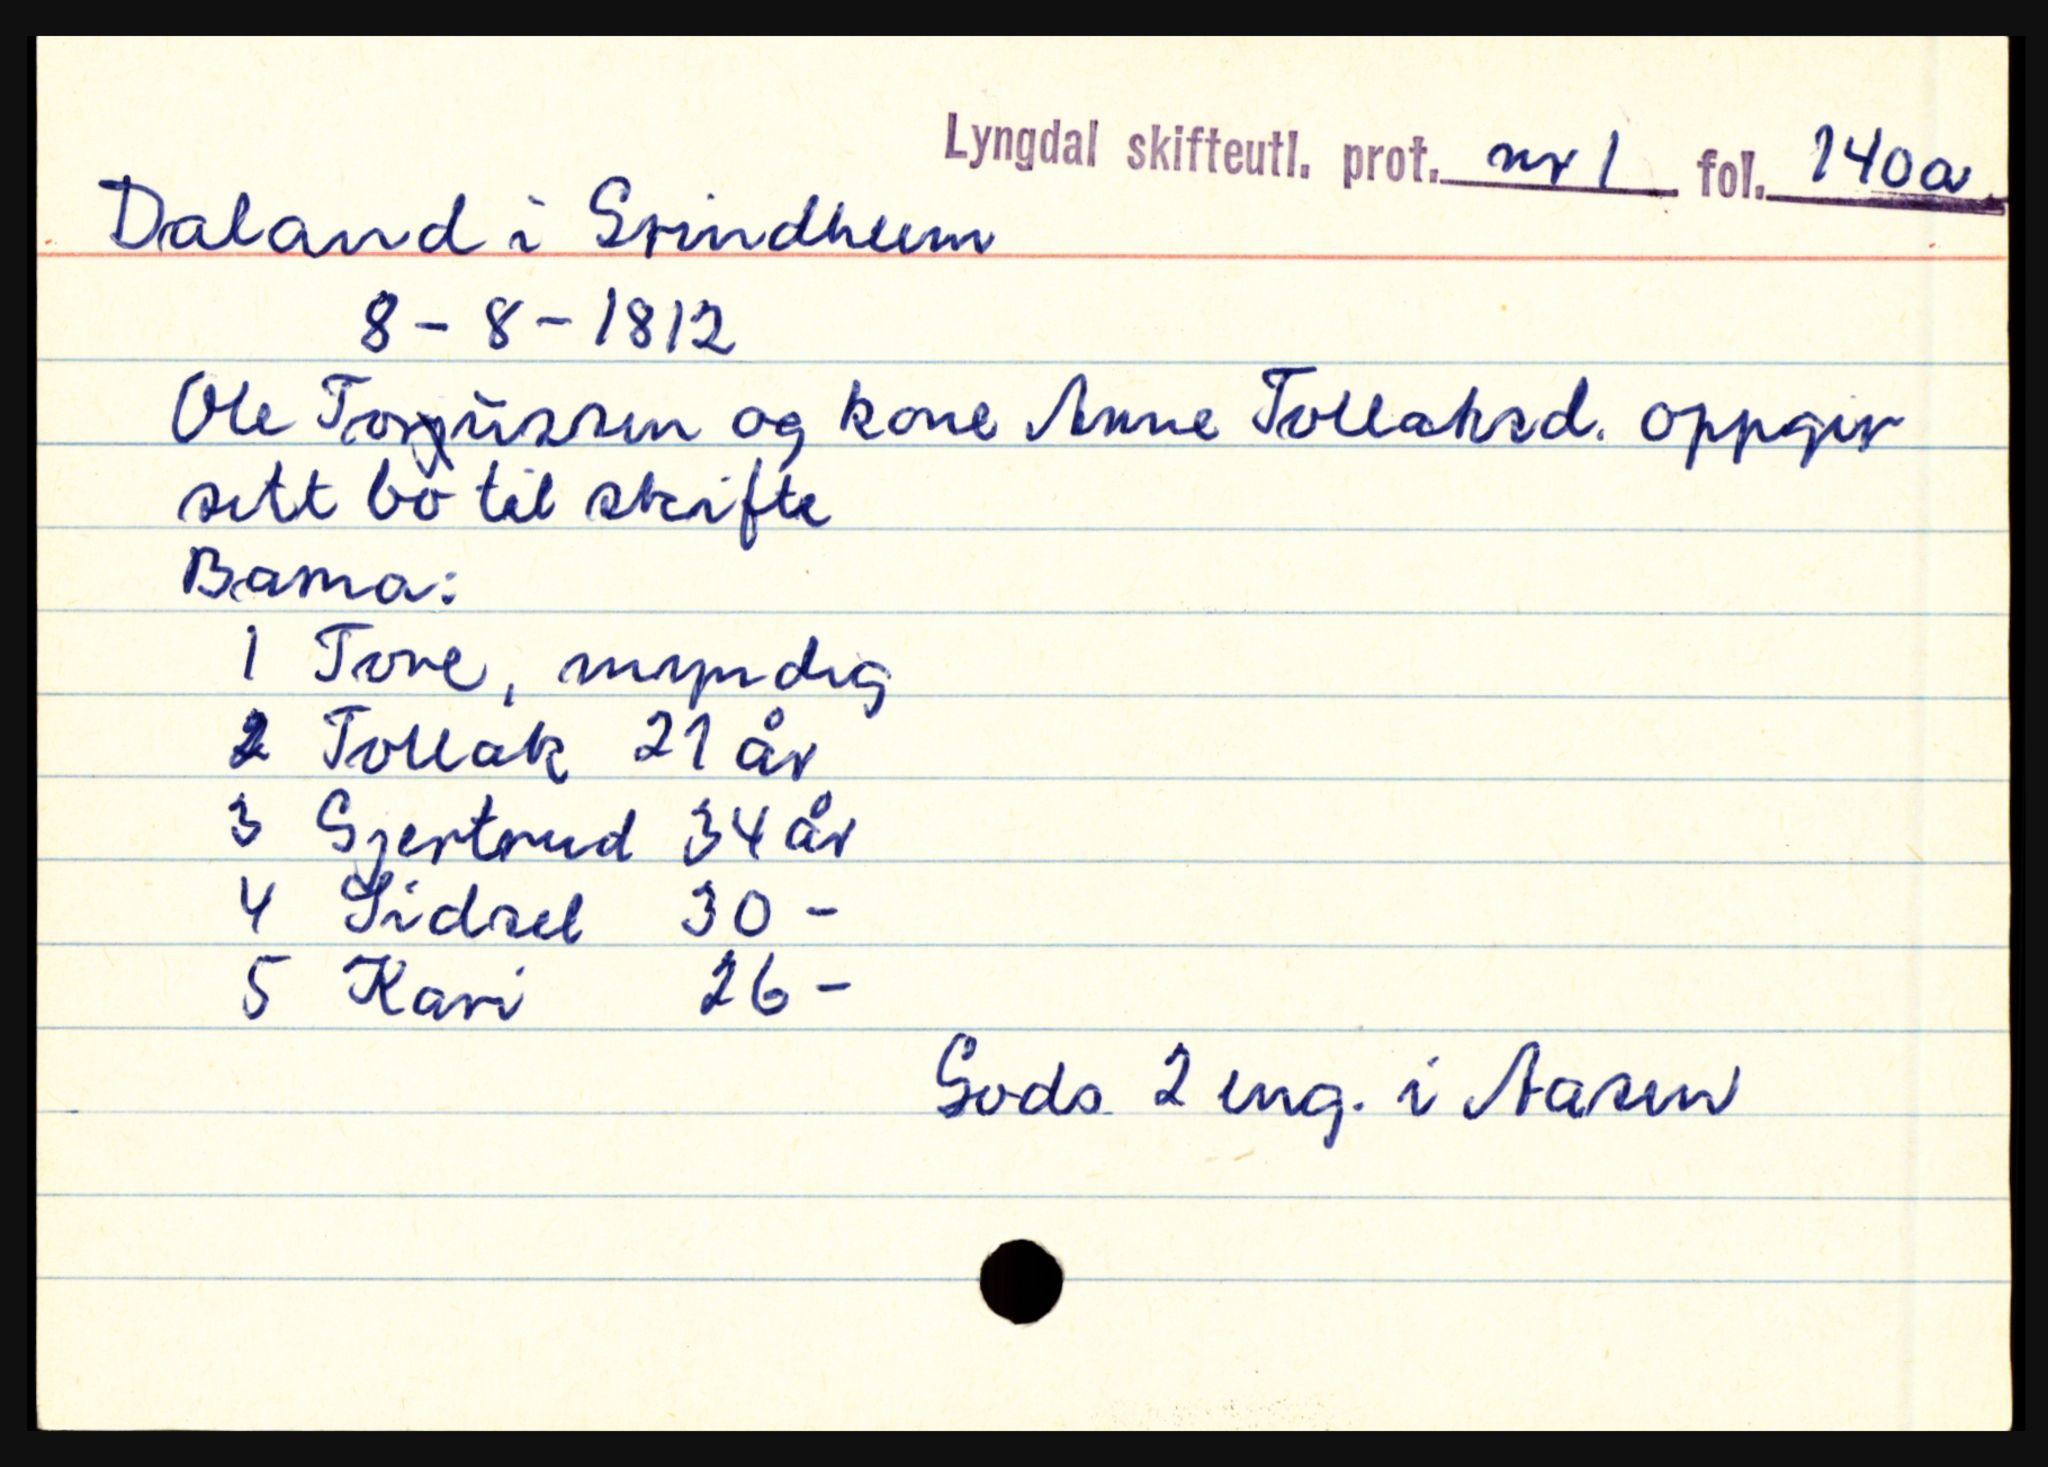 Lyngdal skifteutl. prot. nr 1 fol. 140a
Daland i Grindheim
8-8-1812
Ole Torjussen og kone Anne Tollaksd. oppgir
sitt bo til skifte
Barna:
1 Tore, myndig
2 Tollak 21 år
3 Gjertrud 34 år
4 Sidsel 30 -
5 Kari 26 -
Gods 2 eng. i Aasen